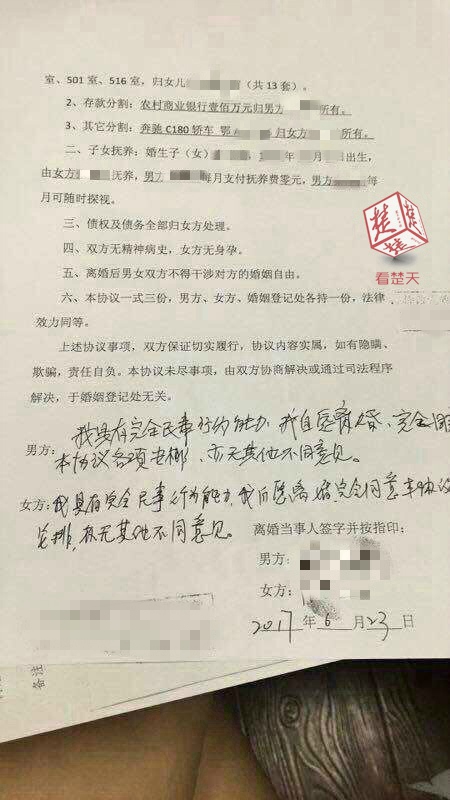 室、501 室、516 室，归女儿（共 13 套）。
2、存款分割：农村商业银行壹佰万元归男方所有。
3、其它分割：奔驰 C180 轿车 鄂 归女方所有。
二、子女抚养：婚生子（女）年月出生，
由女方抚养，男方每月支付抚养费零元，男方每
月可随时探视。
三、债权及债务全部归女方处理。
四、双方无精神病史，女方无身孕。
五、离婚后男女双方不得干涉对方的婚姻自由。
六、本协议一式三份，男方、女方、婚姻登记处各持一份，法律
效力同等。
上述协议事项，双方保证切实履行，协议内容实属，如有隐瞒、
欺骗，责任自负。本协议未尽事项，由双方协商解决或通过司法程序
解决，于婚姻登记处无关。
我具有完全民事行为能力，我自愿离婚，完全同
男方：本协议各项安排，亦无其他不同意见。
女方：我具有完全民事行为能力，我自愿离婚完全同意本协议
安排，亦无其他不同意见。
离婚当事人签字并按指印：
男方：
女方：
2017年6月23日
楚
楚
看楚天
备注